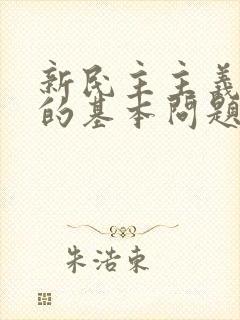 新民主主義
的基本問題
朱浩東